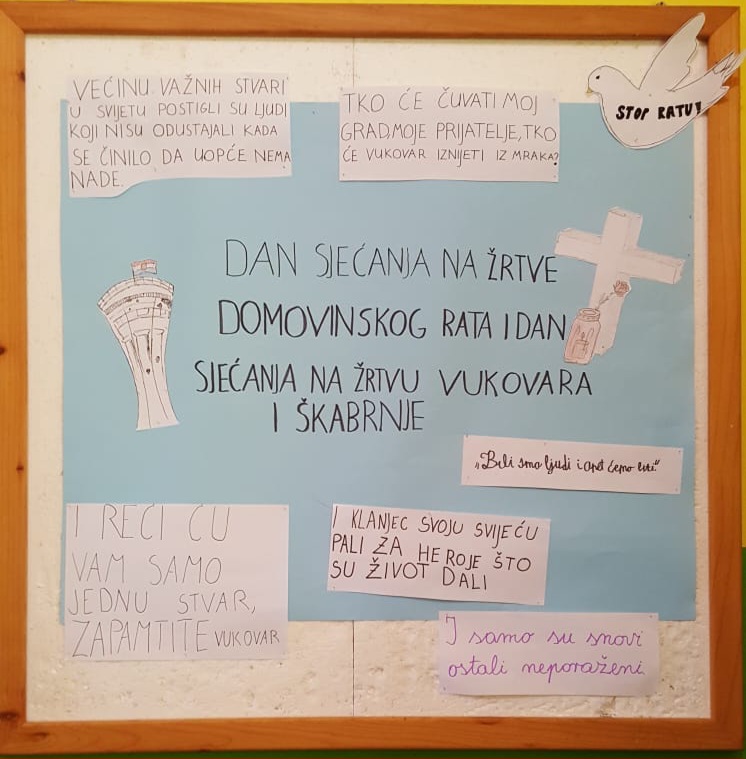 VEĆINU VAŽNIH STVARI
U SVIJETU POSTIGLI SU LJUDI
KOJI NISU ODUSTAJALI KADA
SE ČINILO DA UOPĆE NEMA
NADE.
TKO ĆE ČUVATI MOJ
GRAD,MOJE PRIJATELJE,TKO
ĆE VUKOVAR IZNIJETI IZ MRAKA?
STOP RATU!
DAN SJEĆANJA NA ŽRTVE
DOMOVINSKOG RATA I DAN
SJEĆANJA NA ŽRTVU VUKOVARA
I ŠKABRNJE
„Bili smo ljudi i opet ćemo biti“
I REĆI ĆU
VAM SAMO
JEDNU STVAR,
ZAPAMTITE VUKOVAR
I KLANJEC SVOJU SVIJEĆU
PALI ZA HEROJE ŠTO
SU ŽIVOT DALI
I samo su snovi
ostali neporaženi